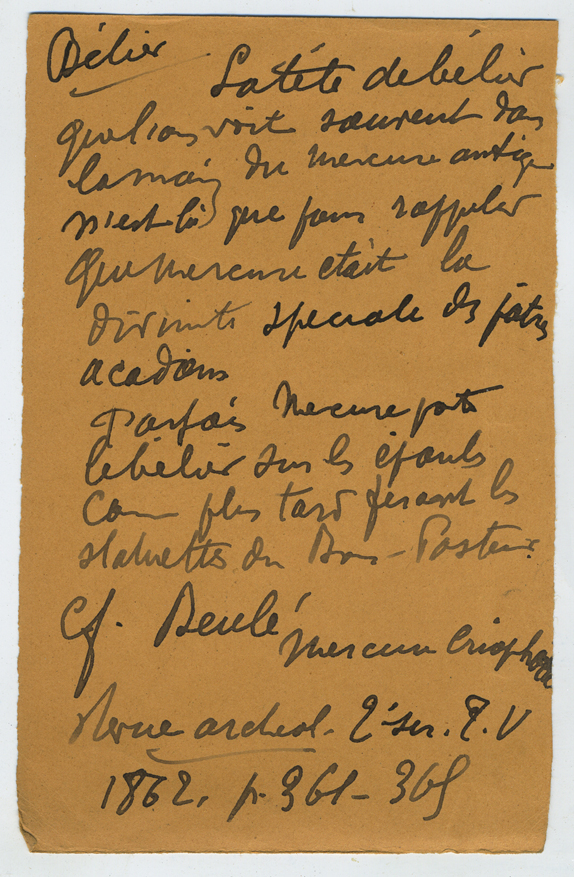 Bélier La tête de bélier
que l'on voit souvent dans
la main du Mercure antique
n'est là que pour rappeler
que Mercure était la
divinité spéciale des pâtres
acadiens
Parfois Mercure porte
le bélier sur les épaules
Comme plus tard feront les
statuettes du Bon-Pasteur.
Cf. Beulé
Mercure Criophore
Revue archeol. 2e ser. T. V
1862. p. 361-365